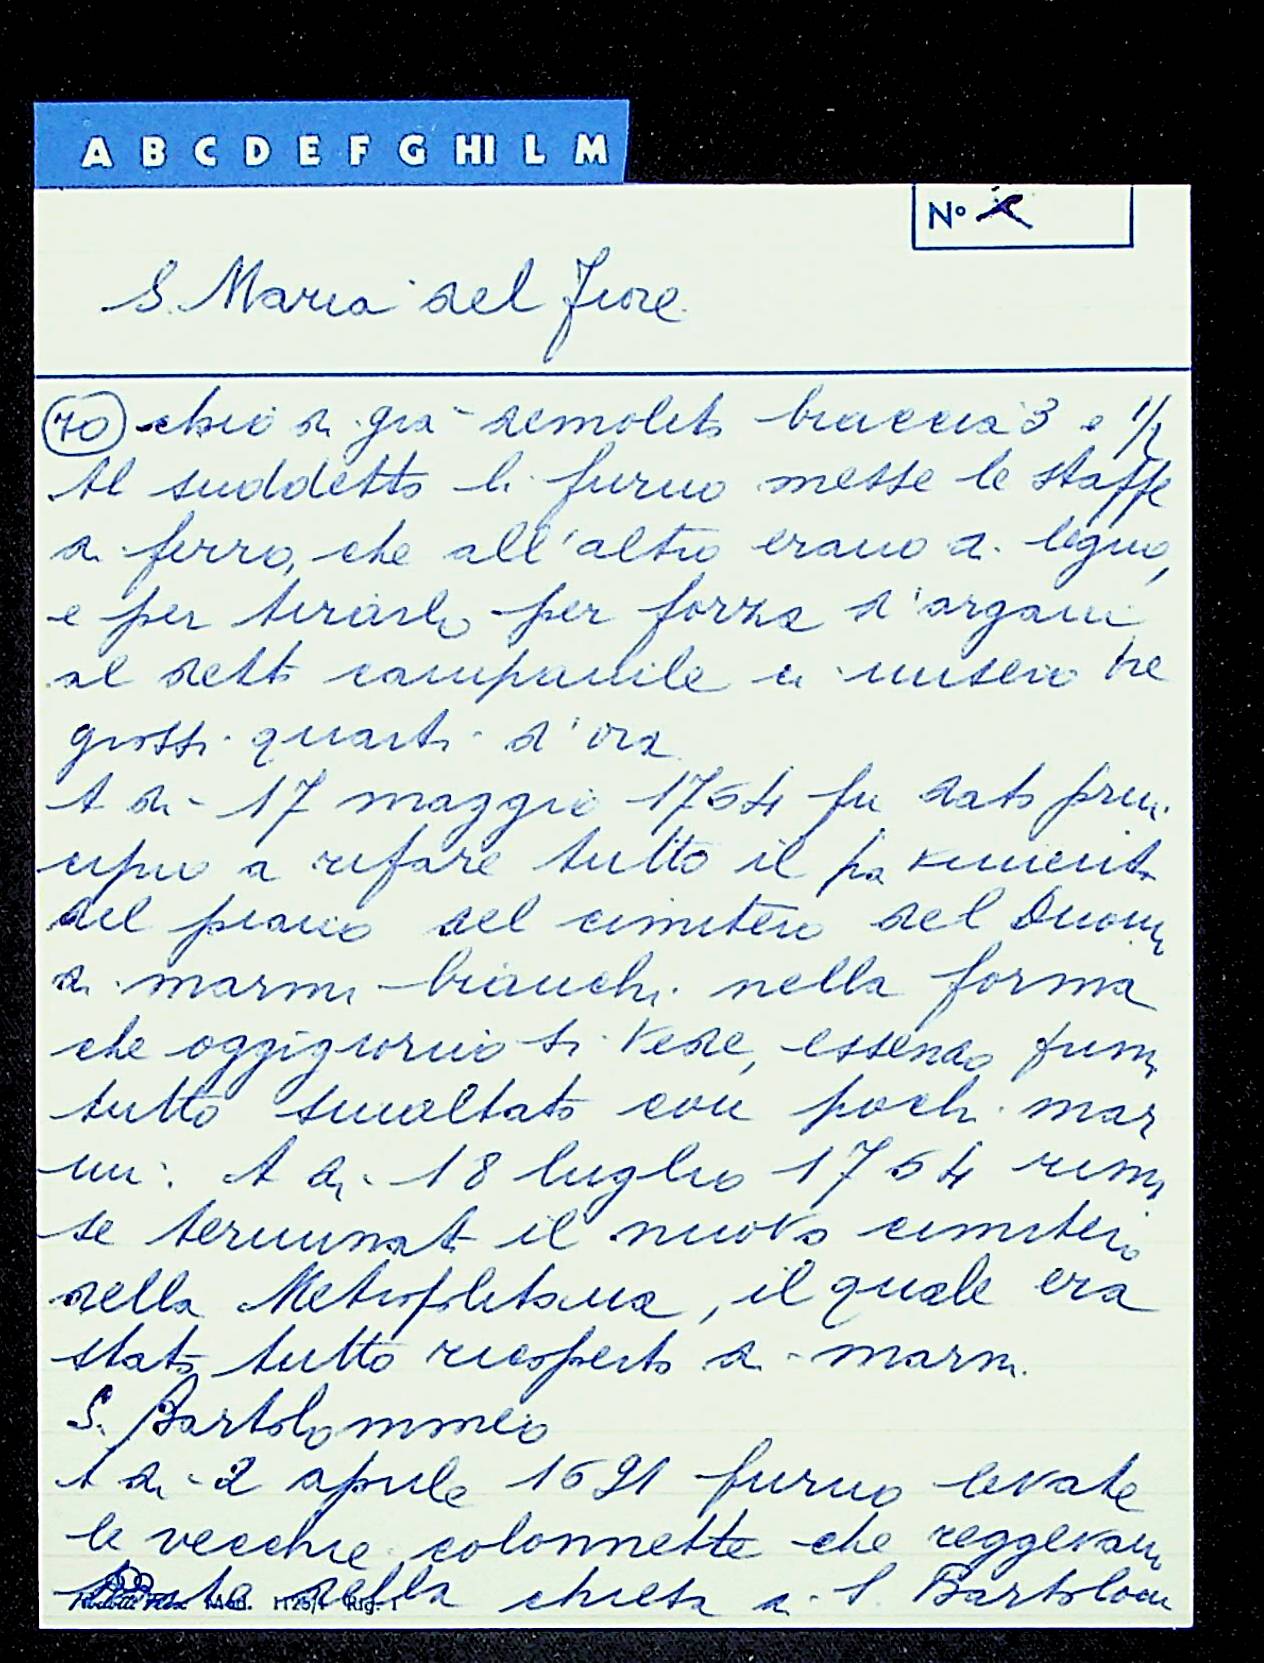 A B C D E F G HI L M
Nº
S. Maria del Fiore
70 chio di già demolito braccia 3 e 1/2
Al suddetto li furno messe le staffe
di ferro, che all'altro erano di legno,
e per tirarlo per forza d'argani
al detto campanile ci misero tre
grossi quarti d'ora
A dì 17 maggio 1754 fu dato prin
cipio a rifare tutto il pavimento
del piano del cimitero del Duomo
di marmi bianchi nella forma
che oggigiorno si vede, essendo
tutto smaltato con pochi mar
mi: A dì 18 luglio 1754 rima
se terminato il nuovo cimitero
della Metropolitana, il quale era
stato tutto ricoperto di marmi.
S. Bartolommeo
A dì 2 aprile 1691 furno levate
le vecchie colonnette che reggevano
della chiesa di S. Bartolom
Mod.